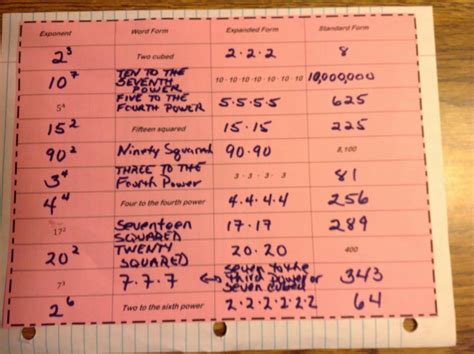 Exponent Word Form Expanded Form Standard Form
2³ Two cubed 2·2·2 8
10⁷ TEN TO THE SEVENTH POWER 10·10·10·10·10·10·10 10,000,000
5⁴ FIVE TO THE FOURTH POWER 5·5·5·5 625
15² Fifteen squared 15·15 225
90² Ninety Squared 90·90 8,100
3⁴ THREE TO THE Fourth Power 3·3·3·3 81
4⁴ Four to the fourth power 4·4·4·4 256
17² Seventeen SQUARED 17·17 289
20² TWENTY SQUARED 20·20 400
7³ 7·7·7 ↔ seven to the third power or seven cubed 343
2⁶ Two to the sixth power 2·2·2·2·2·2 64